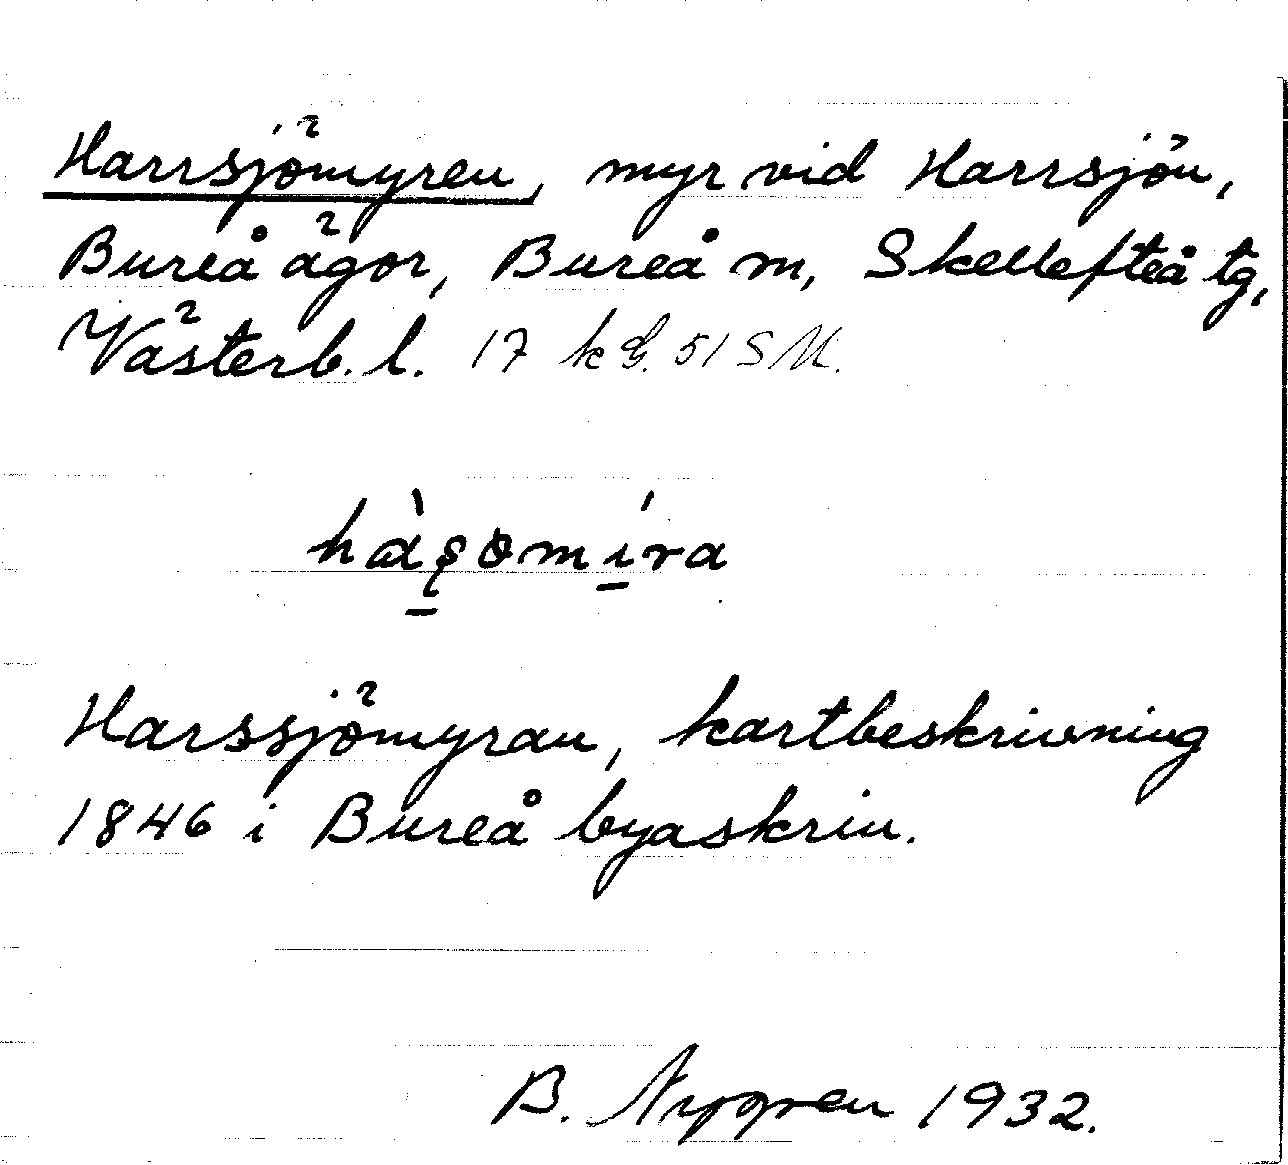 Harrsjömyren, myr vid Harrsjön,
Bureå ägor, Bureå m, Skellefteå tg,
Västerb. l. 17 k G. 51 SM.
Harssjömyran, kartbeskrivning
1846 i Bureå byaskrin.
B. Nygren 1932.